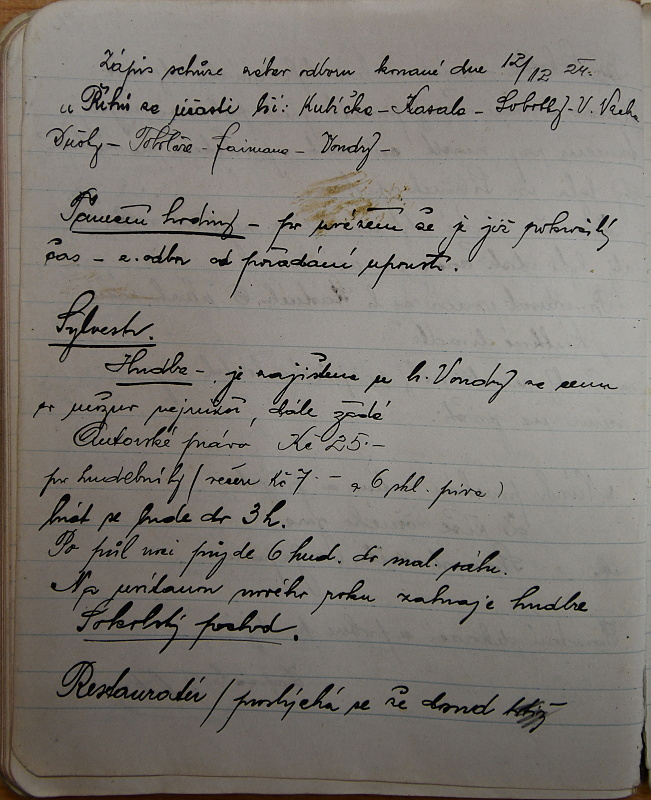 Zápis schůze zábav. odboru konané dne 12/12 24.
u Řihů za účasti bří: Kubíčka – Kasala – Soboty – V. Vacka
Dušky – Tokoláře – Faimana – Vondry –
Taneční hodiny – po uvážení že je již pokročilý
čas – z. odbor od pořádání upouští.
Sylvestr.
Hudba – je zajištena p. b. Vondry za cenu
po úvazu nejnižší, dále žádá
Autorské právo Kč 25.–
pro hudebníky / večeři Kč 7.– a 6 skl. piva )
hrát se bude do 3 h.
Po půl noci půjde 6 hud. do mal. sálu.
Na uvítanou nového roku zahraje hudba
Sokolský pochod.
Restauratér / proslýchá se že dosud